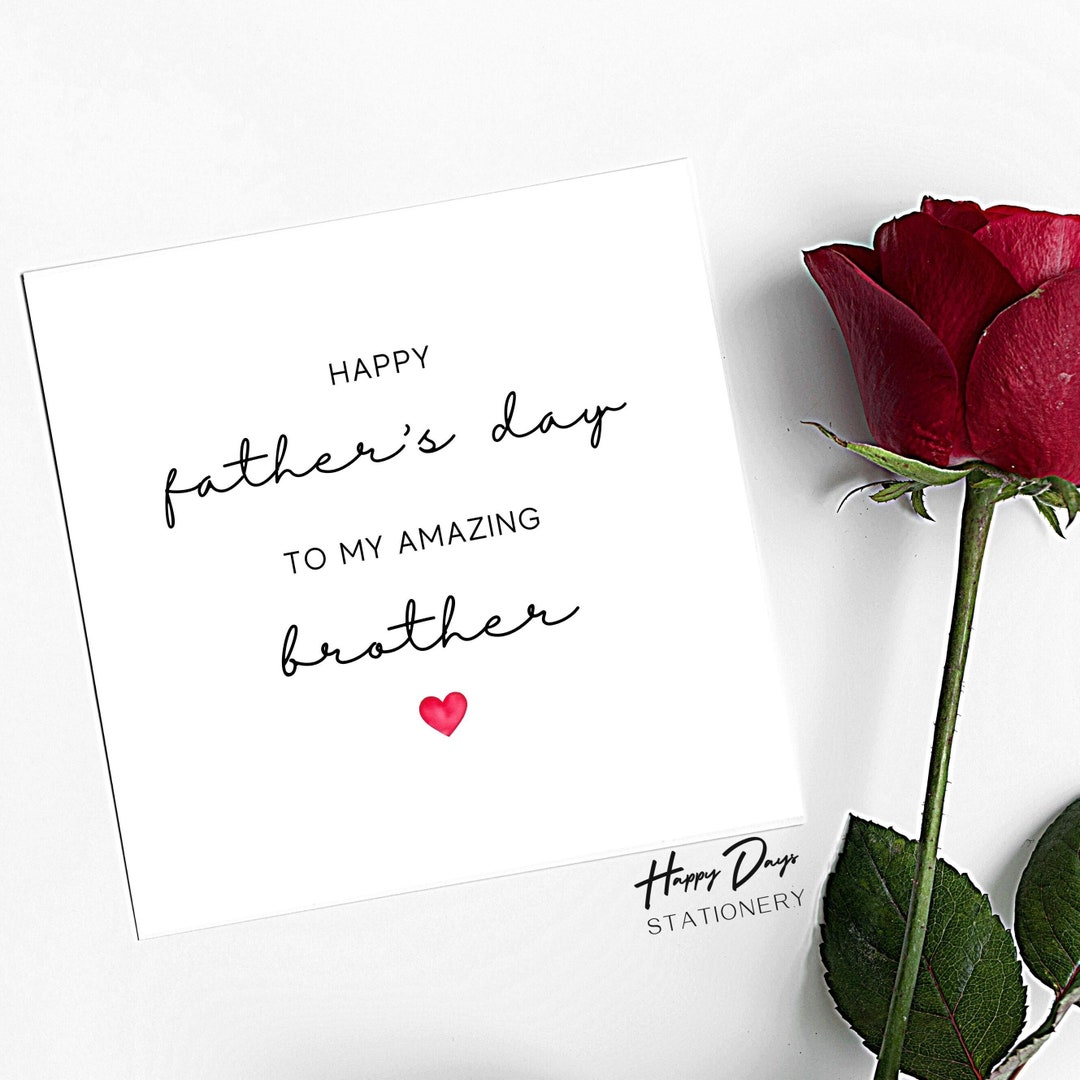 HAPPY
father's day
TO MY AMAZING
brother
Happy Days
STATIONERY